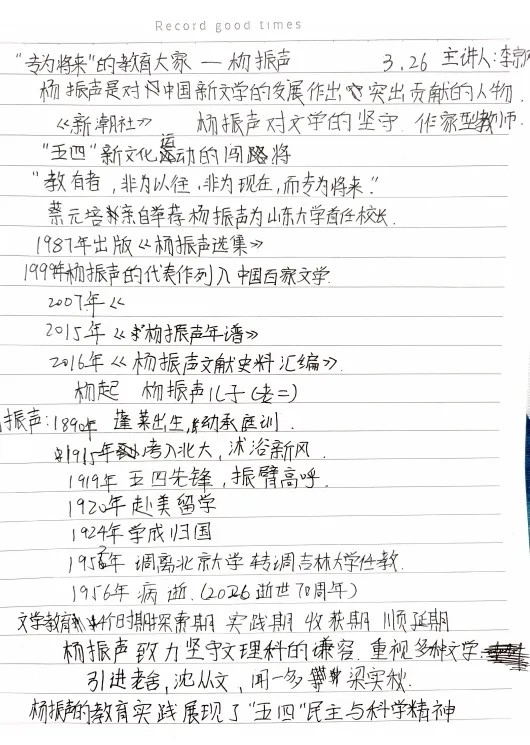 Record good times
"专为将来"的教育大家 — 杨振声 3.26 主讲人:李宗
杨振声是对中国新文学的发展作出突出贡献的人物.
《新潮社》 杨振声对文学的坚守 作家型教师.
"五四"新文化运动的闯将
"教育者,非为以往,非为现在,而专为将来."
蔡元培亲自举荐杨振声为山东大学首任校长.
1987年出版《杨振声选集》
1999年杨振声的代表作列入中国百家文学.
2007年《
2015年《杨振声年谱》
2016年《杨振声文献史料汇编》.
杨起 杨振声儿子(老二)
振声:1890年 蓬莱出生,幼承庭训.
1915年考入北大,沐浴新风.
1919年 五四先锋,振臂高呼.
1920年 赴美留学
1924年 学成归国
1952年 调离北京大学 转调吉林大学任教.
1956年 病逝.(2026逝世70周年)
文学教育 4个时期:探索期 实践期 收获期 顺延期
杨振声致力坚守文理科的兼容.重视多种文学
引进老舍,沈从文,闻一多 梁实秋.
杨振声的教育实践展现了"五四"民主与科学精神